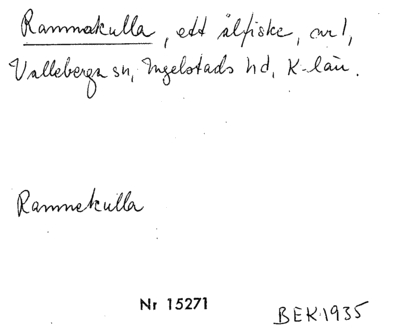 Rammakulla, ett ålfiske, nr 1,
Valleberga sn, Ingelstads hd, K-län.
Rammekulla
Nr 15271
BEK 1935